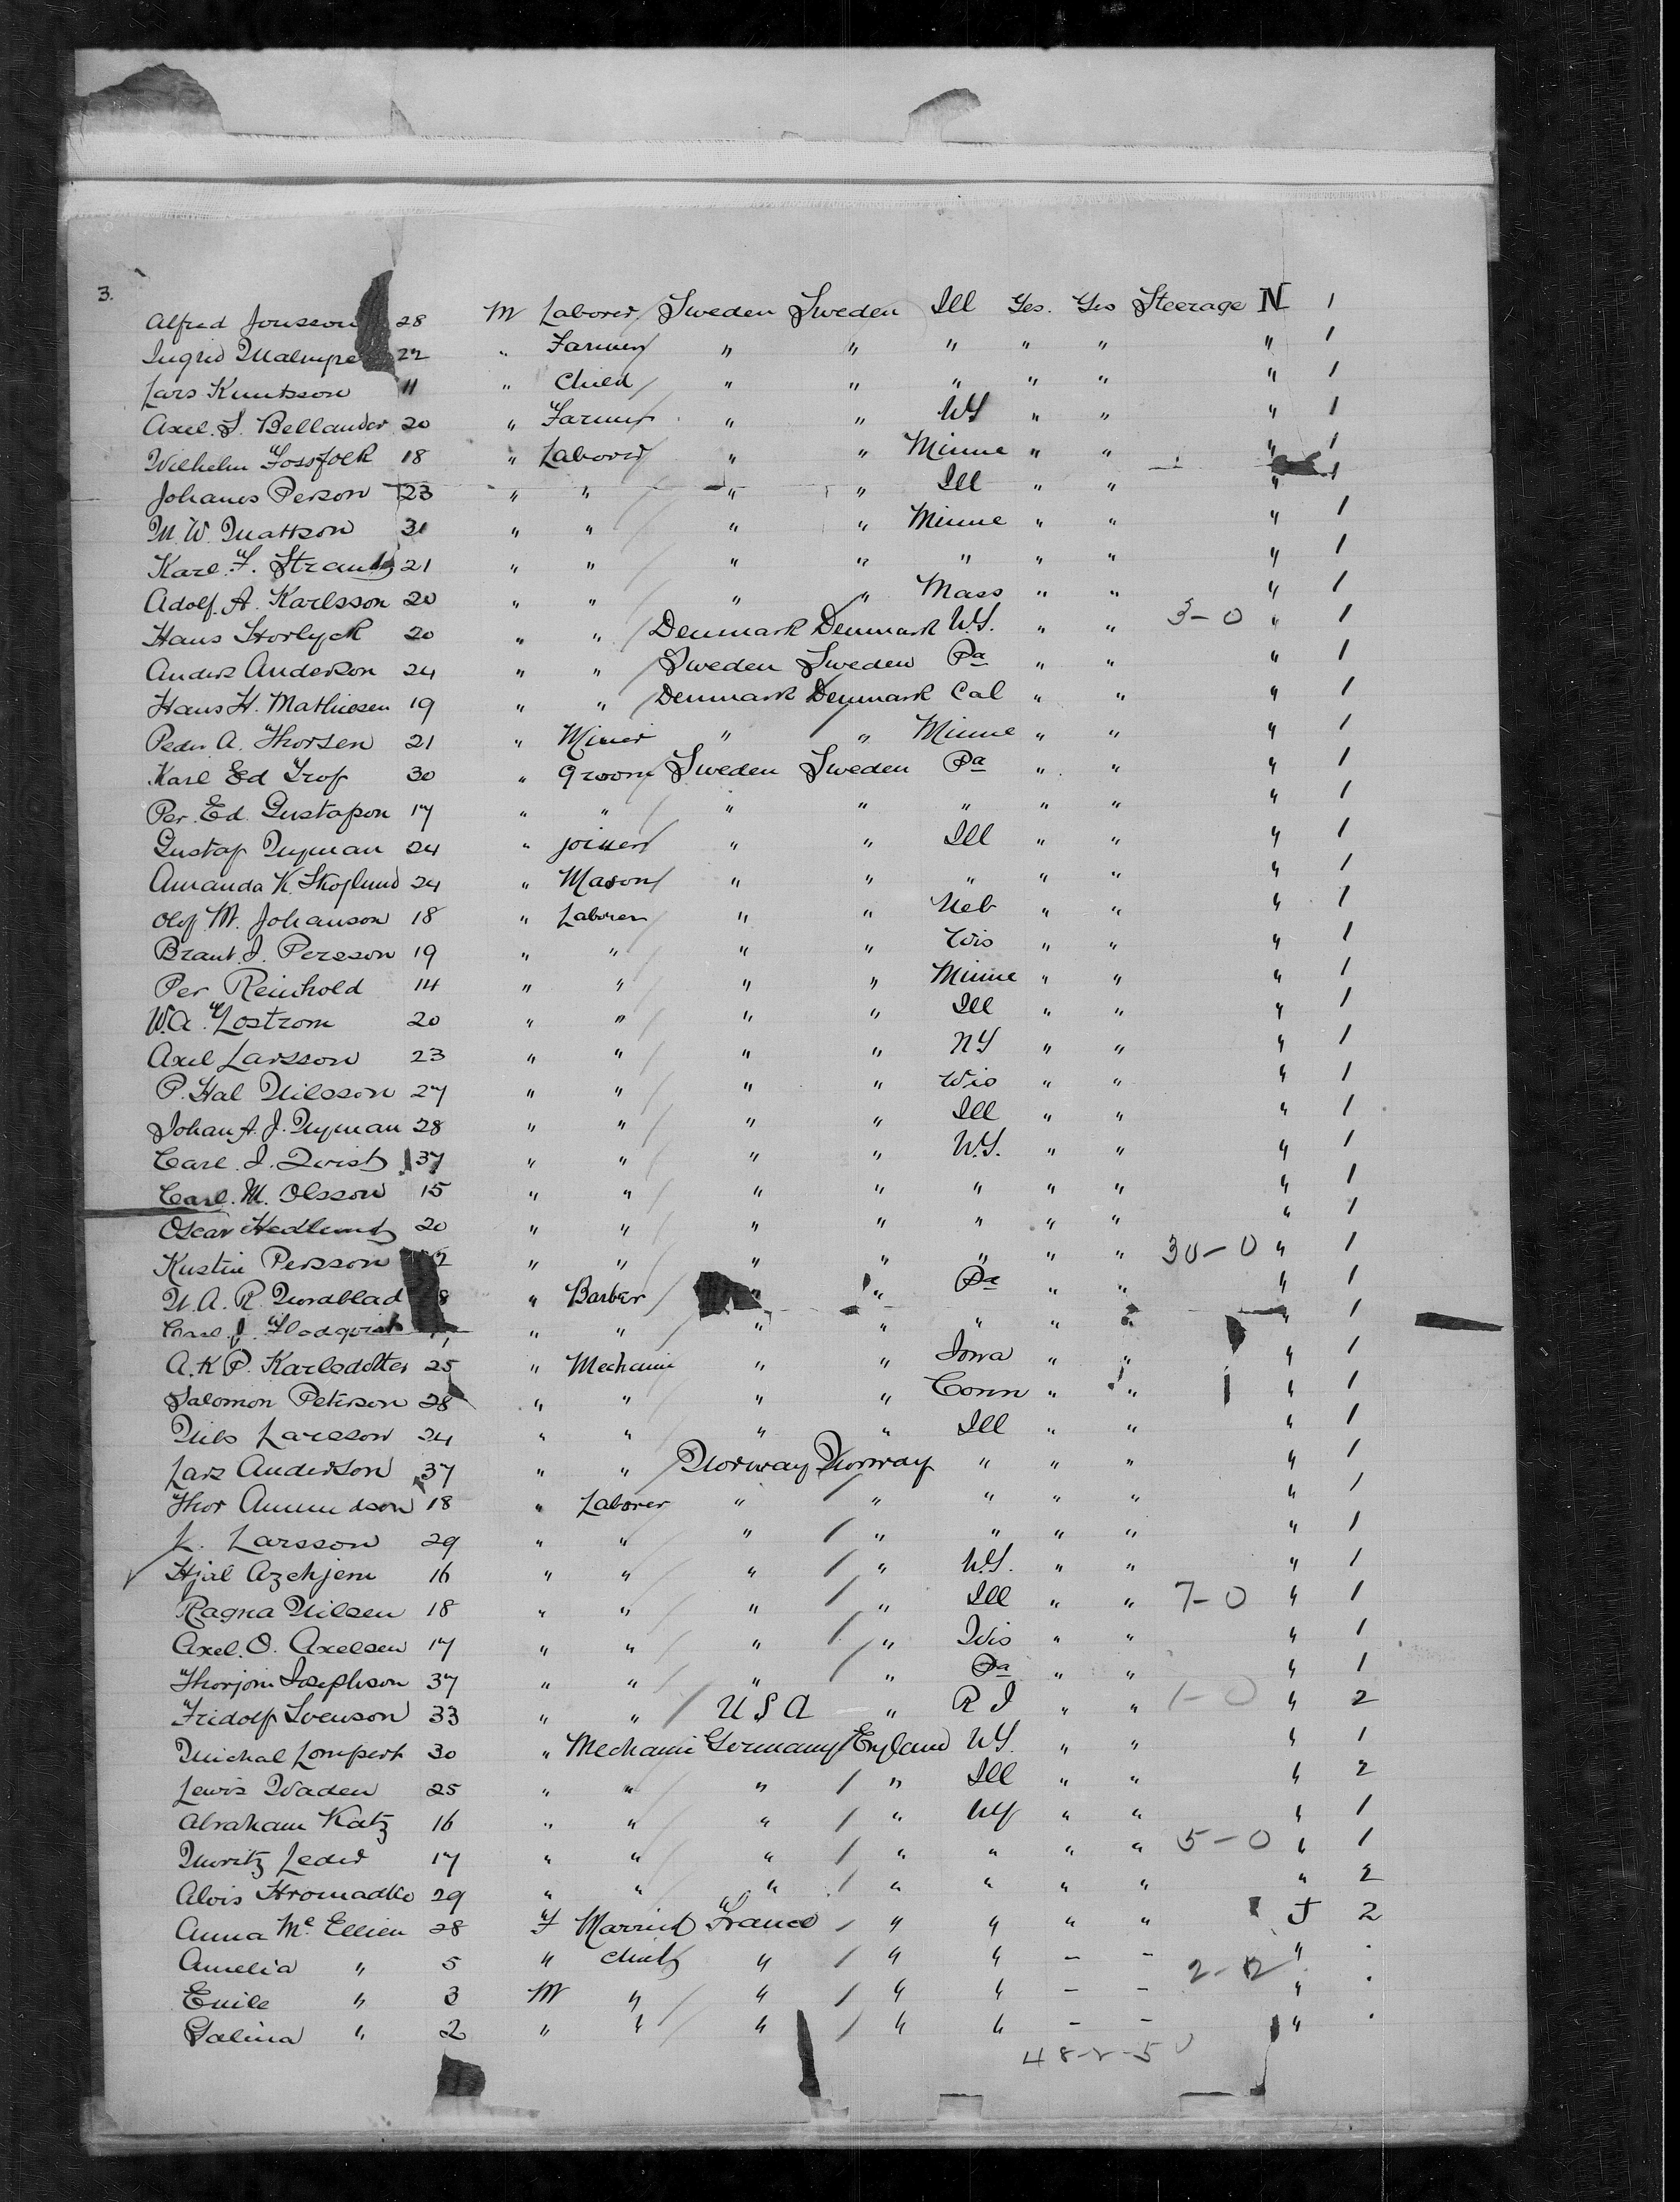 3.
Alfred Jonsson 28 M Laborer Sweden Sweden Ill Yes. Yes Steerage N 1
Ingrid 22 " Farmer " " " " " " 1
Lars Knutsson 11 " Child " " " " " " 1
Axel. S. Bellander 20 " Farmer " " NY " " " 1
Wilhelm 18 " Laborer " " Minne " " " 1
Johanes Person 23 " " " " Ill " " " 1
M. W. Mattson 31 " " " " Minne " " " 1
Karl. F. 21 " " " " " " " " 1
Adolf. A. Karlsson 20 " " " " Mass " " " 1
Hans Storlyck 20 " " Denmark Denmark N.Y. " " 3-0 " 1
Anders Anderson 24 " " Sweden Sweden Pa " " " 1
Hans H. Mathiesen 19 " " Denmark Denmark Cal " " " 1
Peder A. Thorsen 21 " Miner " " Minne " " " 1
Karl Ed 30 " Groom Sweden Sweden Pa " " " 1
Per. Ed. Gustafson 17 " " " " " " " " 1
Gustaf Nyman 24 " joiner " " Ill " " " 1
Amanda K. Skoglund 24 " Mason " " " " " " 1
Olof M. Johanson 18 " Laborer " " Neb " " " 1
Brant. J. Persson 19 " " " " Wis " " " 1
Per Reinhold 14 " " " " Minne " " " 1
W. A. 20 " " " " Ill " " " 1
Axel Larsson 23 " " " " NY " " " 1
P. Hal Nilsson 27 " " " " Wis " " " 1
Johan A. J. Nyman 28 " " " " Ill " " " 1
Carl. J. Qvist 37 " " " " N.Y. " " " 1
Carl. M. Olsson 15 " " " " " " " " 1
Oscar Hedlund 20 " " " " " " " " 1
Kustin Persson " " " " " " " 30-0 " 1
N. A. R. Nordblad 8 " Barber " " Pa " " " 1
Carl. J. Flodqvist " " " " " " " " 1
A. K. P. Karlsdotter 25 " Mechanic " " Iowa " " " 1
Salomon Peterson 28 " " " " Conn " " " 1
Nils Larsson 24 " " " " Ill " " " 1
Lars Anderson 37 " " Norway Norway " " " " 1
Thor Amundson 18 " Laborer " " " " " " 1
L. Larsson 29 " " " " " " " " 1
Hjal 16 " " " " N.Y. " " " 1
Ragna Nilsen 18 " " " " Ill " " 7-0 " 1
Axel. O. Axelsen 17 " " " " Wis " " " 1
Thorjorn Josephson 37 " " " " Pa " " " 1
Fridolf Svenson 33 " " U S A " R I " " 1-0 " 2
Michal Lompert 30 " Mechanic Germany England NY. " " " 1
Lewis Waden 25 " " " " Ill " " " 2
Abraham Katz 16 " " " " NY " " " 1
Moritz Leder 17 " " " " " " " 5-0 " 1
Alois Hromadko 29 " " " " " " " " 2
Anna Mc Ellien 28 F Married France " " " " J 2
Amelia " 5 " child " " " - - " .
Emile " 3 M " " " " - - 2-12 " .
Salina " 2 " " " " " - - " .